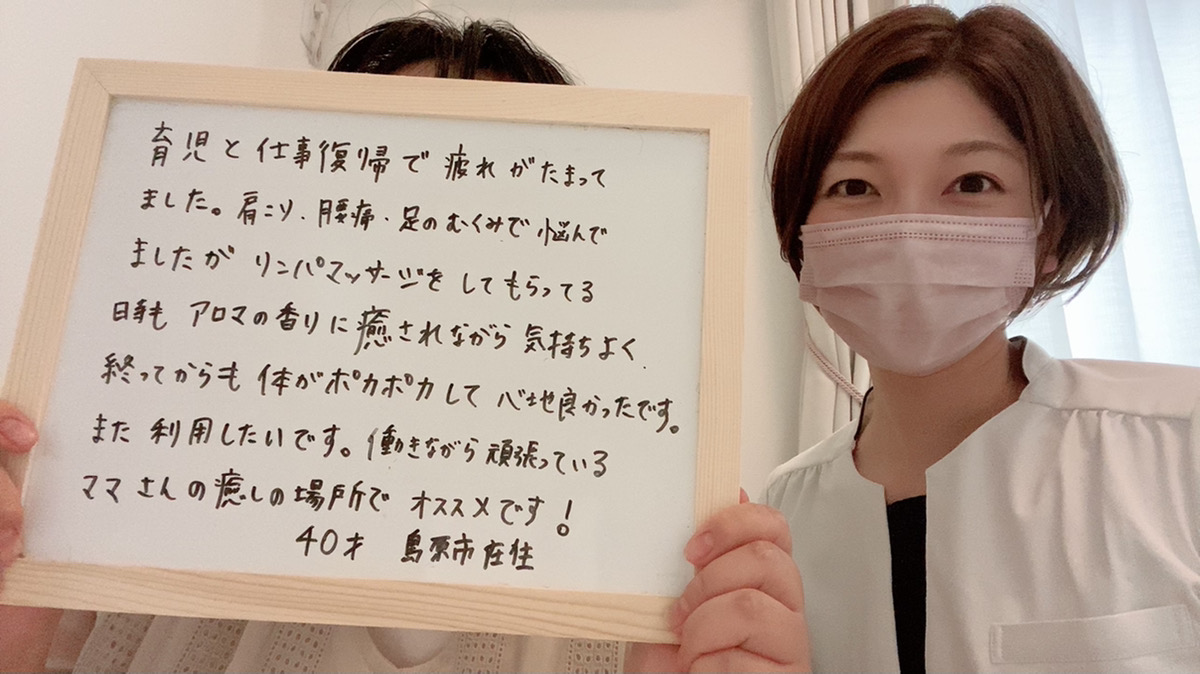 育児と仕事復帰で疲れがたまって
ました。肩こり、腰痛、足のむくみで悩んで
ましたがリンパマッサージをしてもらってる
時もアロマの香りに癒されながら気持ちよく
終ってからも体がポカポカして心地良かったです。
また利用したいです。働きながら頑張っている
ママさんの癒しの場所でオススメです!
40才 島原市在住